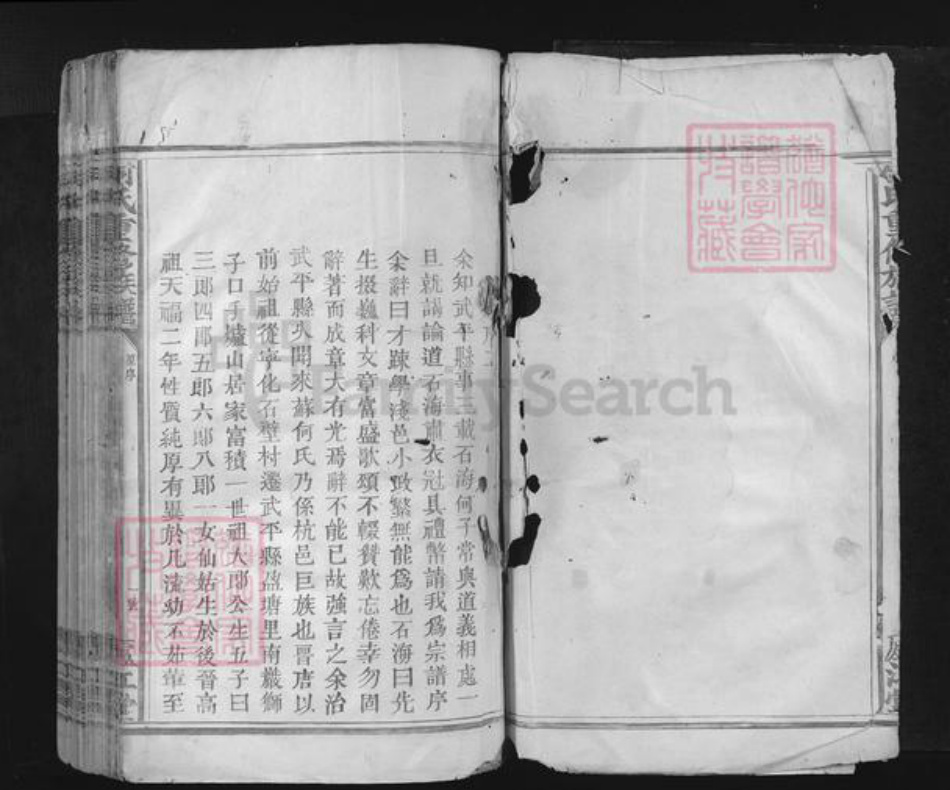 余知武平縣事三載石海何子常與道義相處一
旦就謁論道石海肅衣冠具禮幣請我爲宗譜序
余辭曰才踈學淺邑小政繁無能爲也石海曰先
生掇巍科文章富盛歌頌不輟贊歎忘倦幸勿固
辭著而成章大有光焉辭不能已故強言之余治
武平縣久聞來蘇何氏乃係杭邑巨族也晉唐以
前始祖從寧化石壁村遷武平縣盈塘里南巖獅
子口手墟山居家富積一世祖大郎公生五子曰
三郎四郎五郎六郎八郎一女仙姑生於後晉高
祖天福二年性質純厚有異於凡流幼不茹葷至
何氏重修族譜
原序
一號
廬江堂
何氏重修族譜
廬江堂
美國猶他家
譜學會
FamilySearch